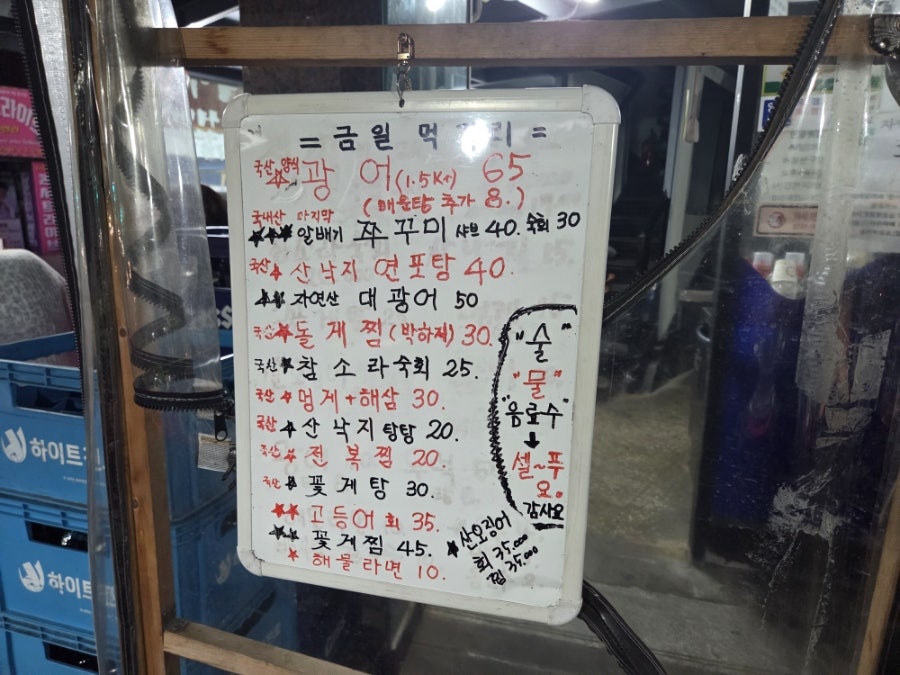 = 금일 먹거리 =
국산 양식 ☆ 광어 (1.5K) 65
(매운탕 추가 8.)
국내산 마지막
★★★ 알배기 쭈꾸미 샤브 40. 숙회 30
국산 ☆ 산낙지 연포탕 40.
★★ 자연산 대광어 50
국산 ★ 돌게찜 (박하지) 30.
국산 ★ 참소라숙회 25.
국산 ★ 멍게+해삼 30.
국산 ★ 산낙지 탕탕 20.
국산 ★ 전복찜 20.
국산 ★ 꽃게탕 30.
★★ 고등어회 35.
★★ 꽃게찜 45.
★ 해물라면 10.
"술"
"물"
"음료수"
↓
셀~푸
요.
감사요
★ 산오징어
회 35.000
찜 35.000
하이트진
하이트진
라이트